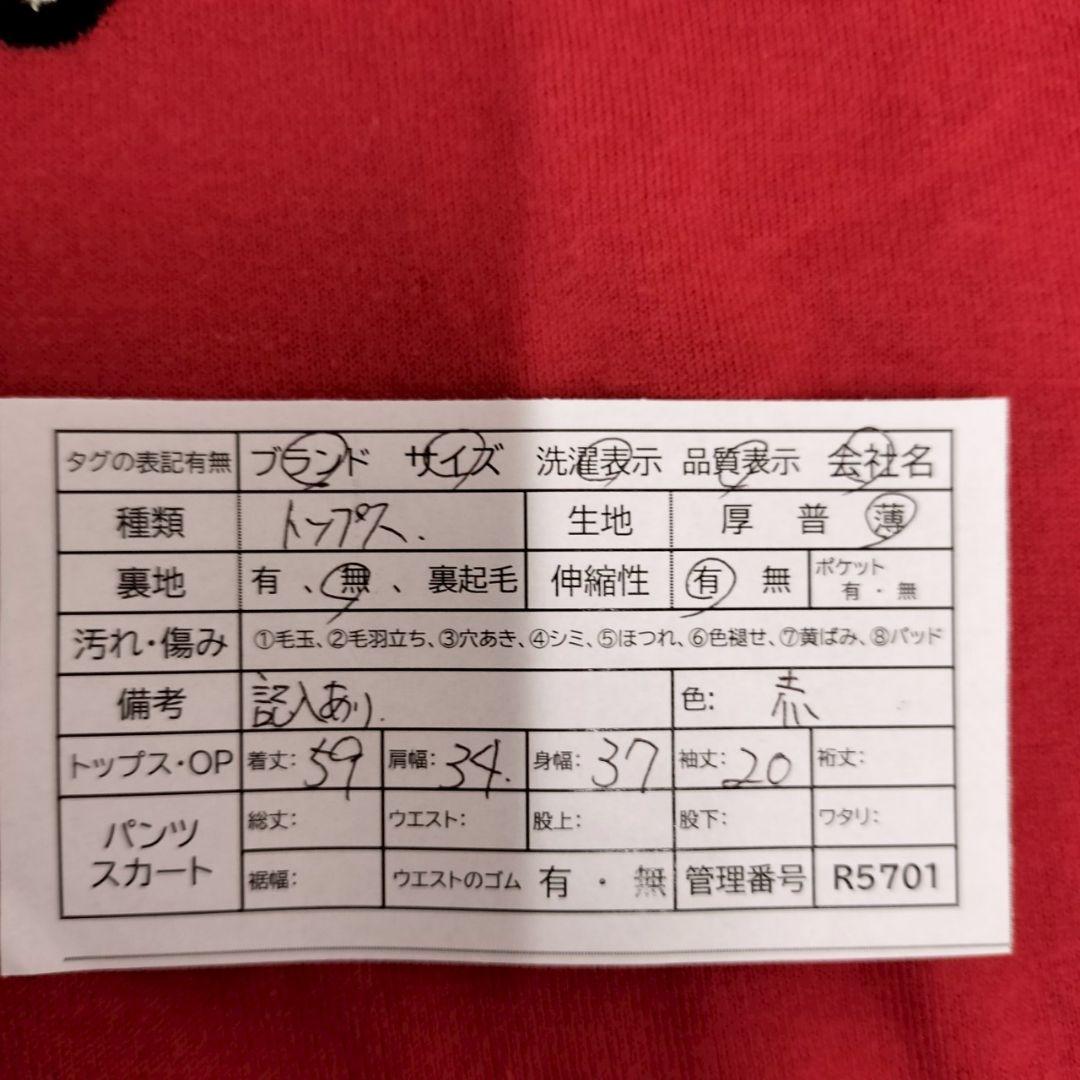 タグの表記有無 ブランド サイズ 洗濯表示 品質表示 会社名
種類 トップス. 生地 厚 普 薄
裏地 有、無、裏起毛 伸縮性 有 無 ポケット 有・無
汚れ・傷み ①毛玉、②毛羽立ち、③穴あき、④シミ、⑤ほつれ、⑥色褪せ、⑦黄ばみ、⑧パッド
備考 記入あり. 色: 赤
トップス・OP 着丈: 59 肩幅: 34. 身幅: 37 袖丈: 20 裄丈:
パンツ スカート 総丈: ウエスト: 股上: 股下: ワタリ:
裾幅: ウエストのゴム 有・無 管理番号 R5701